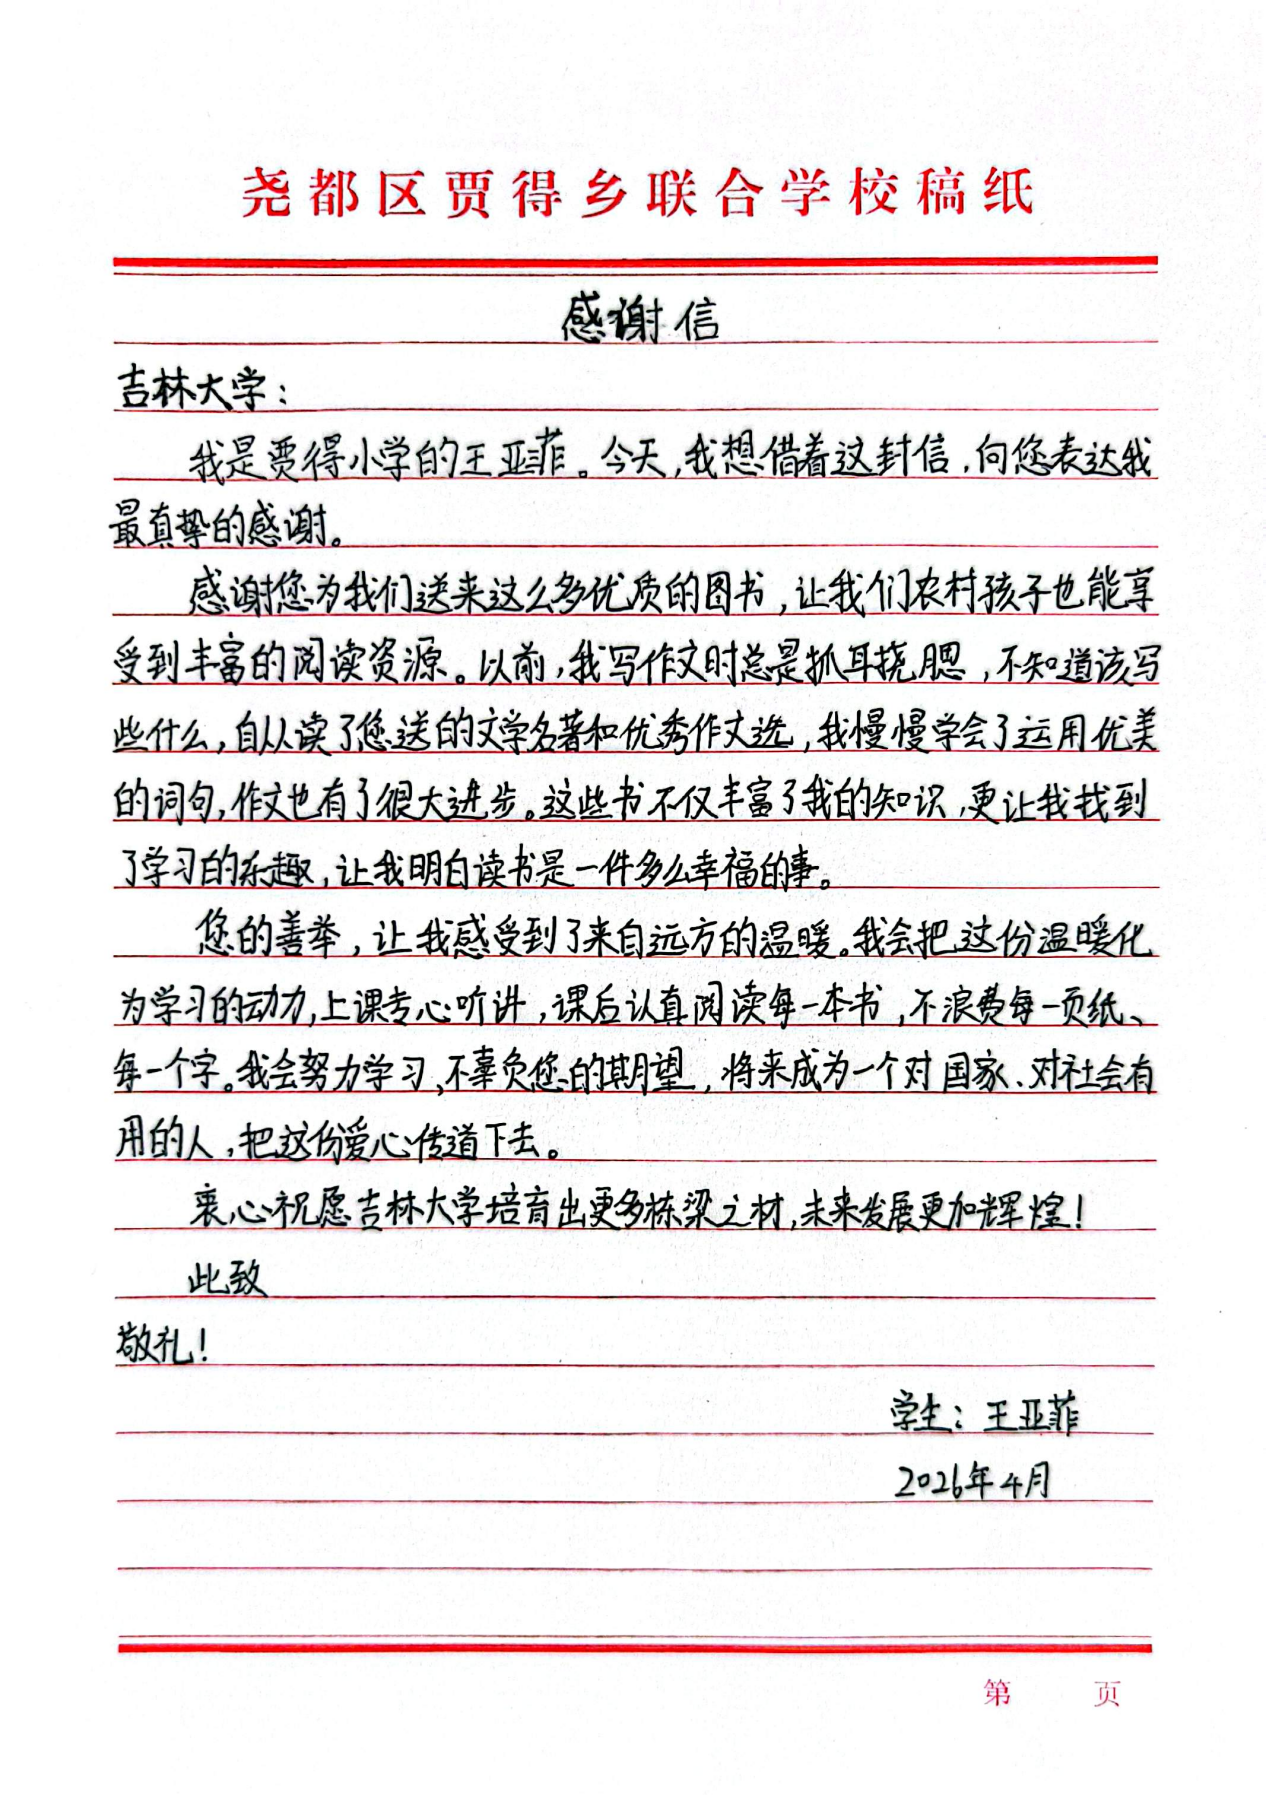 尧都区贾得乡联合学校稿纸
感谢信
吉林大学：
我是贾得小学的王亚菲。今天，我想借着这封信，向您表达我
最真挚的感谢。
感谢您为我们送来这么多优质的图书，让我们农村孩子也能享
受到丰富的阅读资源。以前，我写作文时总是抓耳挠腮，不知道该写
些什么，自从读了您送的文学名著和优秀作文选，我慢慢学会了运用优美
的词句，作文也有了很大进步。这些书不仅丰富了我的知识，更让我找到
了学习的乐趣，让我明白读书是一件多么幸福的事。
您的善举，让我感受到了来自远方的温暖。我会把这份温暖化
为学习的动力，上课专心听讲，课后认真阅读每一本书，不浪费每一页纸、
每一个字。我会努力学习，不辜负您的期望，将来成为一个对国家、对社会有
用的人，把这份爱心传递下去。
衷心祝愿吉林大学培育出更多栋梁之材，未来发展更加辉煌！
此致
敬礼！
学生：王亚菲
2026年4月
第 页